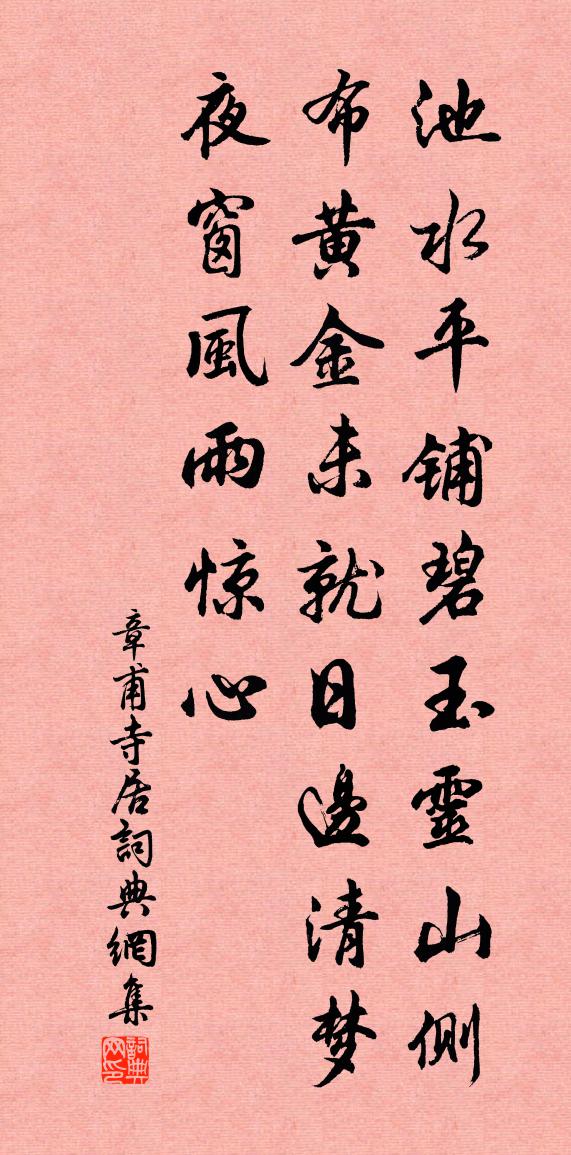 池水平铺碧玉靈山側
布黄金未就日邊清梦
夜窗風雨惊心
章甫寺居詞典網集
詞典网印